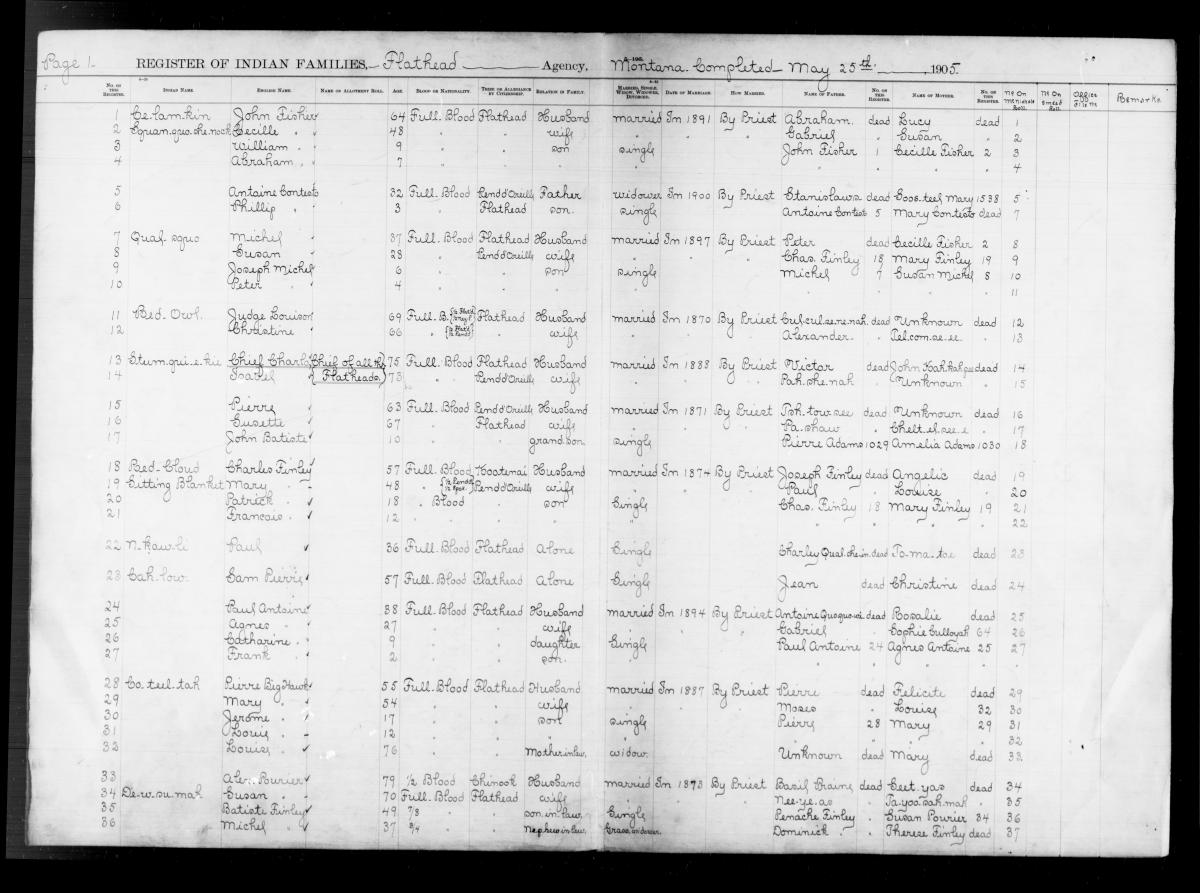 Page 1- REGISTER OF INDIAN FAMILIES, Flathead Agency, Montana. Completed May 25th. 1905.
No. ON THIS REGISTER. INDIAN NAME. ENGLISH NAME. NAME ON ALLOTMENT ROLL. AGE. BLOOD OR NATIONALITY. TRIBE OR ALLEGIANCE BY CITIZENSHIP. RELATION IN FAMILY. MARRIED, SINGLE, WIDOW, WIDOWER, DIVORCED. DATE OF MARRIAGE. HOW MARRIED. NAME OF FATHER. No. ON THIS REGISTER. NAME OF MOTHER. No. ON THIS REGISTER. No On Roll. No On Smead Roll. Office File No Remarks
1 Ce.lam.kin John Fisher 64 Full. Blood Flathead Husband married In 1891 By Priest Abraham. dead Lucy dead 1
2 Cecille " 48 " " wife " " " Gabriel " Susan " 2
3 William " 9 " " son single John Fisher 1 Cecille Fisher 2 3
4 Abraham " 7 " " " " " " 4
5 Antoine Contesto 32 Full. Blood Pend d'Oreille Father widower In 1900 By Priest Stanislaus dead Mary 1538 5
6 Phillip " 3 " Flathead son. single Antoine Contest 5 Mary Contesto dead 7
7 Qual-squo Michel 37 Full. Blood Flathead Husband married In 1897 By Priest Peter dead Cecille Fisher 2 8
8 Susan " 23 " Pend d'Oreille wife " " " Chas. Finley 18 Mary Finley 19 9
9 Joseph Michel 6 " " son single Michel 7 Susan Michel 8 10
10 Peter " 4 " " " " " " 11
11 Red-Owl. Judge Louison 69 Full. B. Flathead Husband married In 1870 By Priest dead Unknown dead 12
12 Christine " 66 " " wife " " " Alexander. " Pel.com.se.ee. " 13
13 Stum.qui.e.kie Chief Charlo (Chief of all the 75 Full. Blood Flathead Husband married In 1888 By Priest Victor dead John dead 14
14 Isabel Flatheads.) 73 " " Pend d'Oreille wife " " " Pah.she.nah " Unknown " 15
15 Pierre 63 Full. Blood Pend d'Oreille Husband married In 1871 By Priest Tsh.tow.see dead Unknown dead 16
16 Susette " 67 " Flathead wife " " " Pa.shaw " Chelt.el.see.e " 17
17 John Batiste 10 " " grand son. single Pierre Adams 1029 Amelia Adams 1030 18
18 Red-Cloud Charles Finley 57 Full. Blood Kootenai Husband married In 1874 By Priest Joseph Finley dead Angelic dead 19
19 Sitting Blanket Mary " 48 " Pend d'Oreille wife " " " Paul " Louise " 20
20 Patrick " 18 " Blood " son Single Chas. Finley 18 Mary Finley 19 21
21 Francois " 12 " " " " " " " " 22
22 N-kaw-li Paul 36 Full. Blood Flathead Alone Single Charley dead To-ma-toe dead 23
23 Cah-low- Sam Pierre 57 Full. Blood Flathead Alone Single Jean dead Christine dead 24
24 Paul Antoine 38 Full. Blood Flathead Husband married In 1894 By Priest Antoine dead Rosalie dead 25
25 Agnes " 27 " " wife " " " Gabriel " Sophie Culloyah 64 26
26 Catharine " 9 " " daughter Single Paul Antoine 24 Agnes Antoine 25 27
27 Frank " 2 " " son. " " " " "
28 Co.teel.tah Pierre Big Hawk 55 Full. Blood Flathead Husband married In 1887 By Priest Pierre dead Felicite dead 29
29 Mary " 54 " " wife " " " Moses " Louise 32 30
30 Jerome " 17 " " son single Pierre 28 Mary 29 31
31 Louis " 12 " " " " " " " " 32
32 Louise " 76 " " Mother in law. widow. Unknown dead Mary dead 33.
33 Alex Pourier 79 1/2 Blood Chinook Husband married In 1873 By Priest Basil dead dead 34
34 De-w-su.mah Susan " 70 Full. Blood Flathead wife " " " Nee-ye-as " Ta.yoo.sah.mah " 35
35 Batiste Finley 49 7/8 " " son. in. law. Single Penache Finley " Susan Pourier 34 36
36 Michel " 37 3/4 " " Nephew in law. Dominick " " Therese Finley dead 37